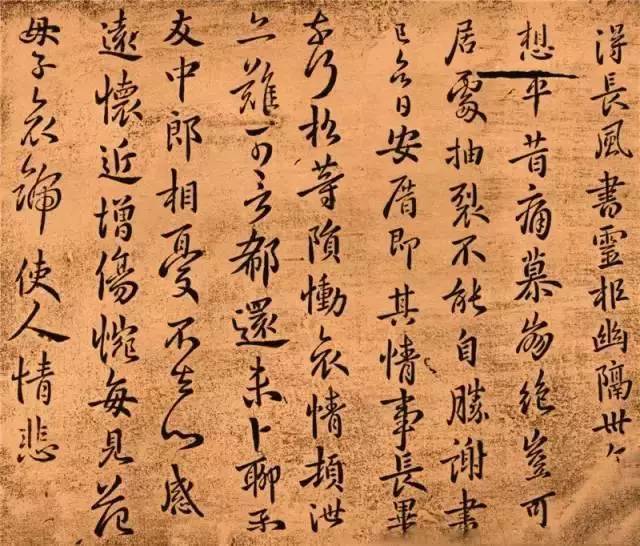 得長風書靈柩幽隔卅々
想平昔痛慕崩絶豈可
居處抽裂不能自勝謝書
已令日安厝即其情事長畢
奈何松等隕慟哀情頓泄
亦難可言郗還未卜聊示
友中郎相憂不去心感
遠懷近增傷惋每見范
母子哀號使人情悲